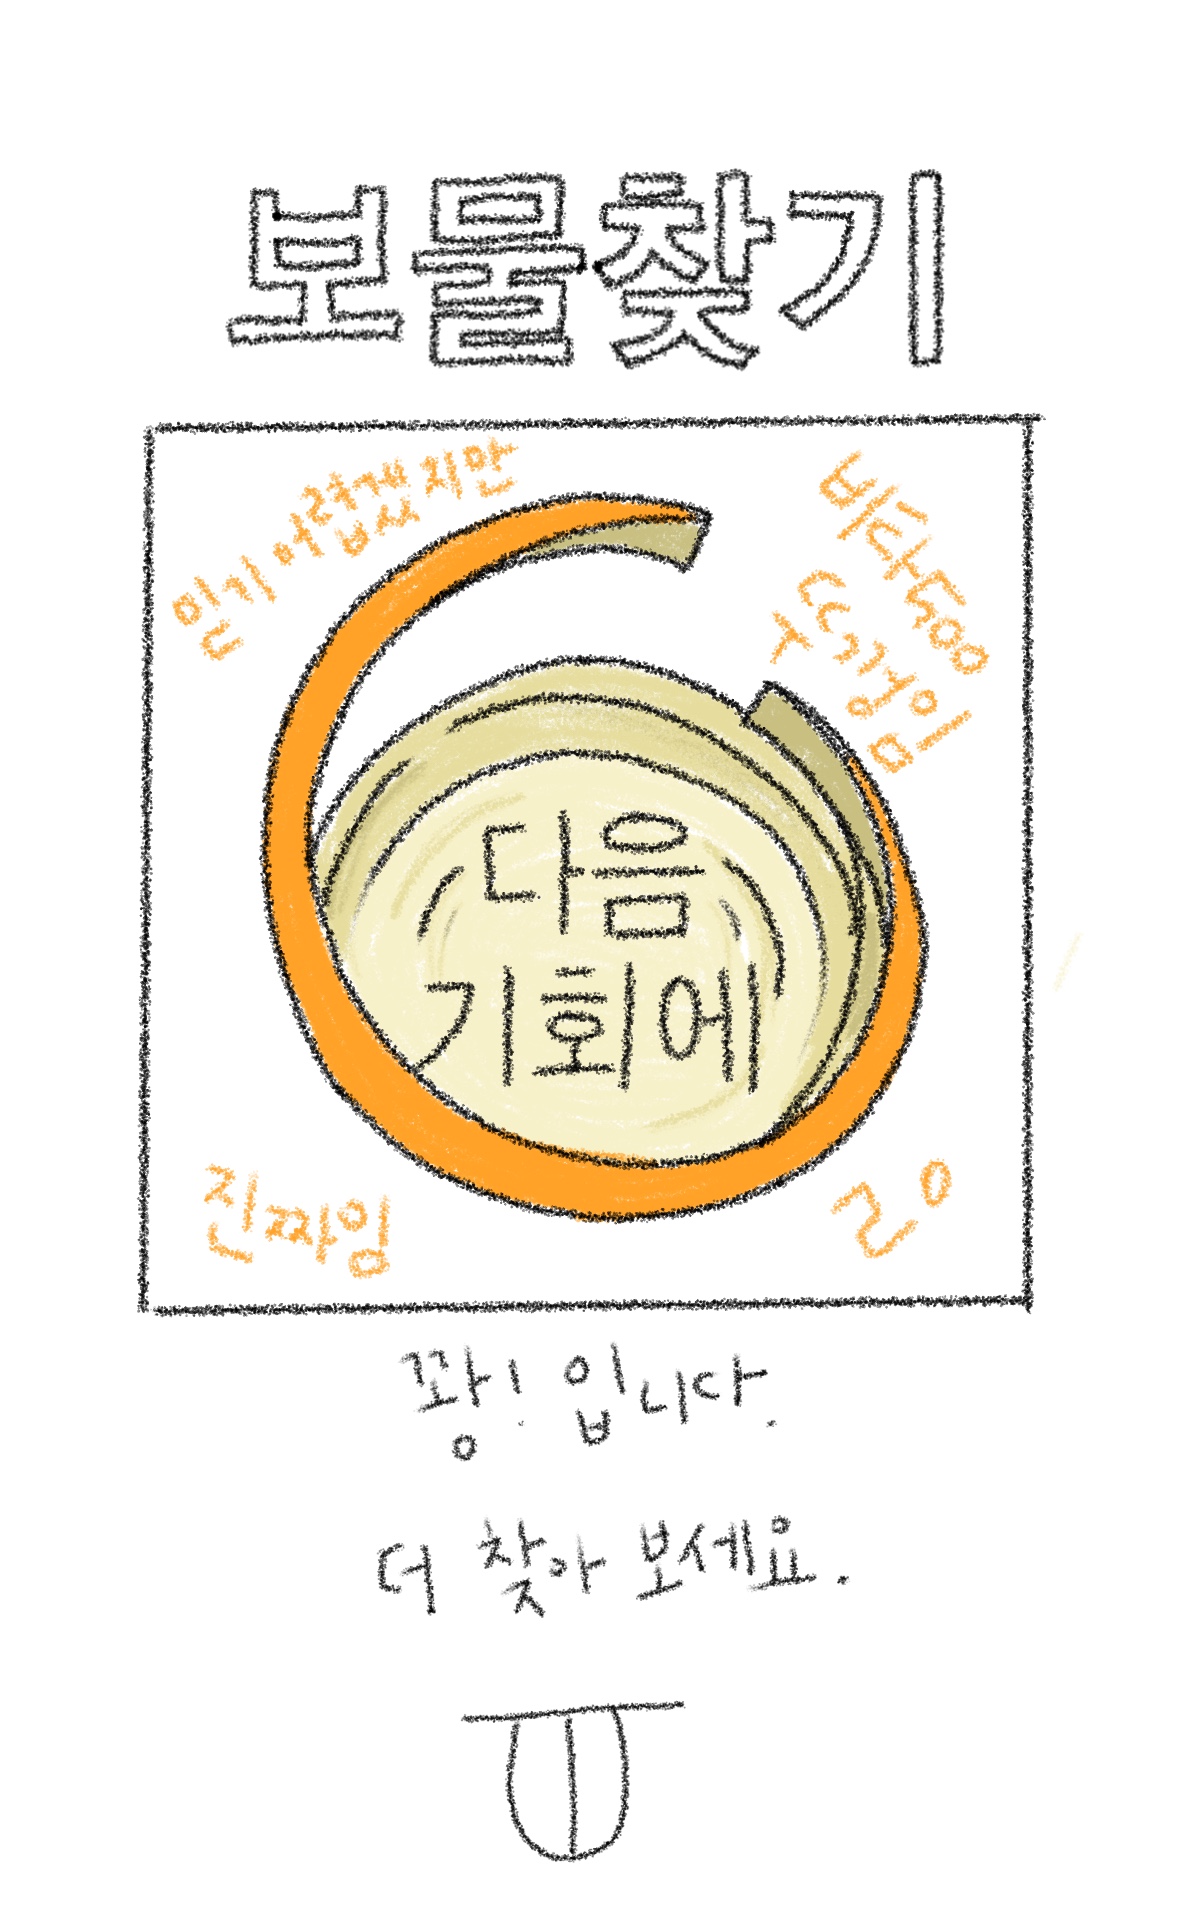 보물찾기
믿기 어렵겠지만
비타500
뚜껑임
다음
기회에
진짜임
ㄹㅇ
꽝! 입니다.
더 찾아 보세요.